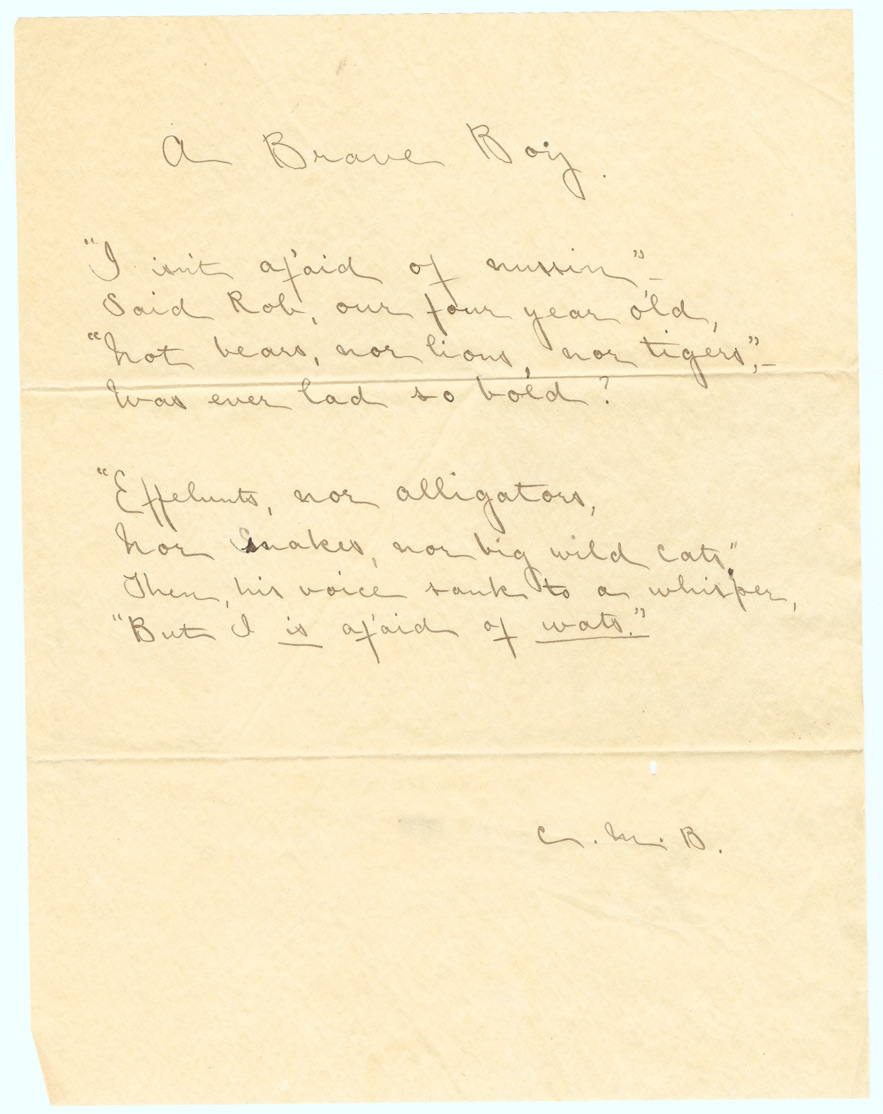 A Brave Boy.
"I isn't af'aid of nussin" –
Said Rob, our four year old,
"Not bears, nor lions, nor tigers", –
Was ever lad so bold?
"Effelunts, nor alligators,
Nor snakes, nor big wild cats."
Then, his voice sank to a whisper,
"But I is af'aid of wats."
C. M. B.